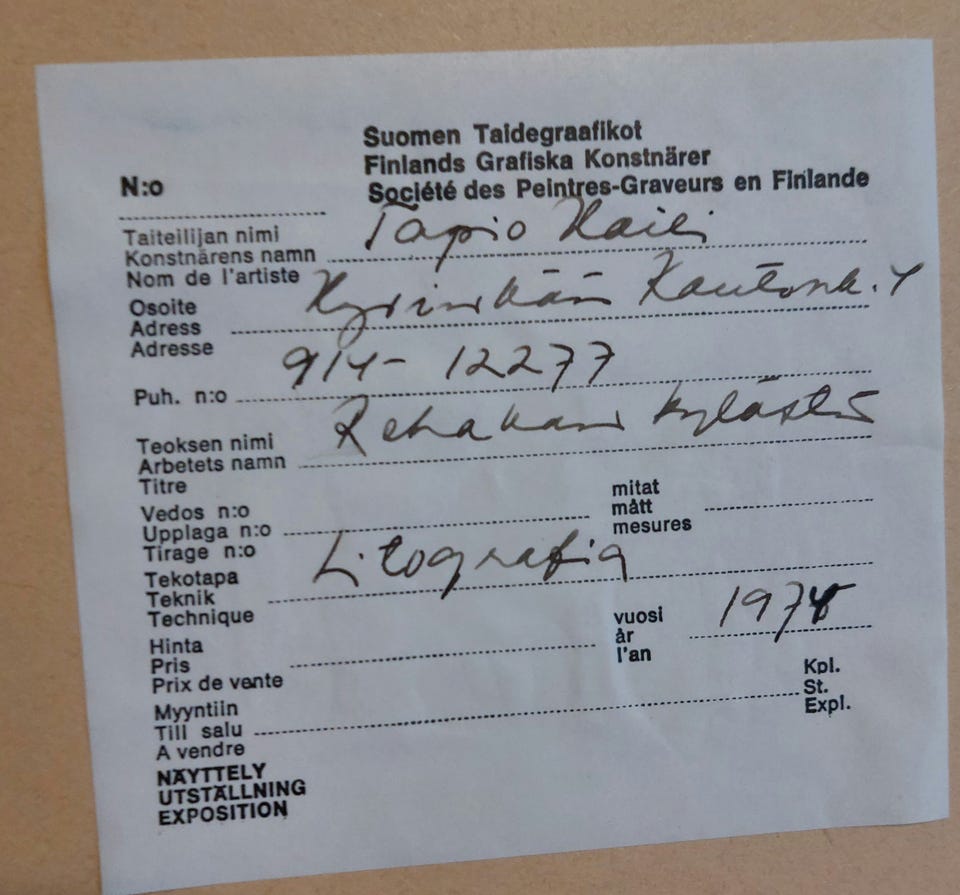 Suomen Taidegraafikot
Finlands Grafiska Konstnärer
N:o Société des Peintres-Graveurs en Finlande
Taiteilijan nimi
Konstnärens namn Tapio
Nom de l'artiste
Osoite
Adress
Adresse
Puh. n:o 914-12277
Teoksen nimi
Arbetets namn
Titre
Vedos n:o mitat
Upplaga n:o mått
Tirage n:o mesures
Tekotapa
Teknik Litografia
Technique
Hinta vuosi
Pris år
Prix de vente l'an
Myyntiin Kpl.
Till salu St.
A vendre Expl.
NÄYTTELY
UTSTÄLLNING
EXPOSITION